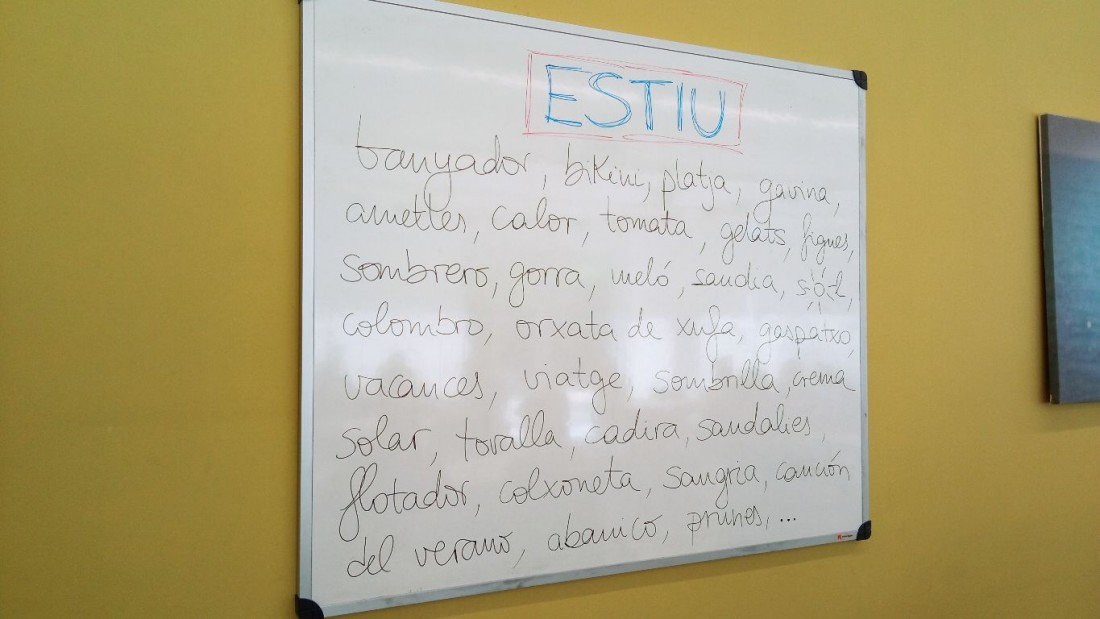 ESTIU
banyador, bikini, platja, gavina,
ametles, calor, tomata, gelats, figues,
sombrero, gorra, meló, sandia, sol,
colombro, orxata de xufa, gaspatxo,
vacances, viatge, sombrilla, crema
solar, tovalla, cadira, sandalies,
flotador, colxoneta, sangria, canción
del verano, abanico, prunes, ...